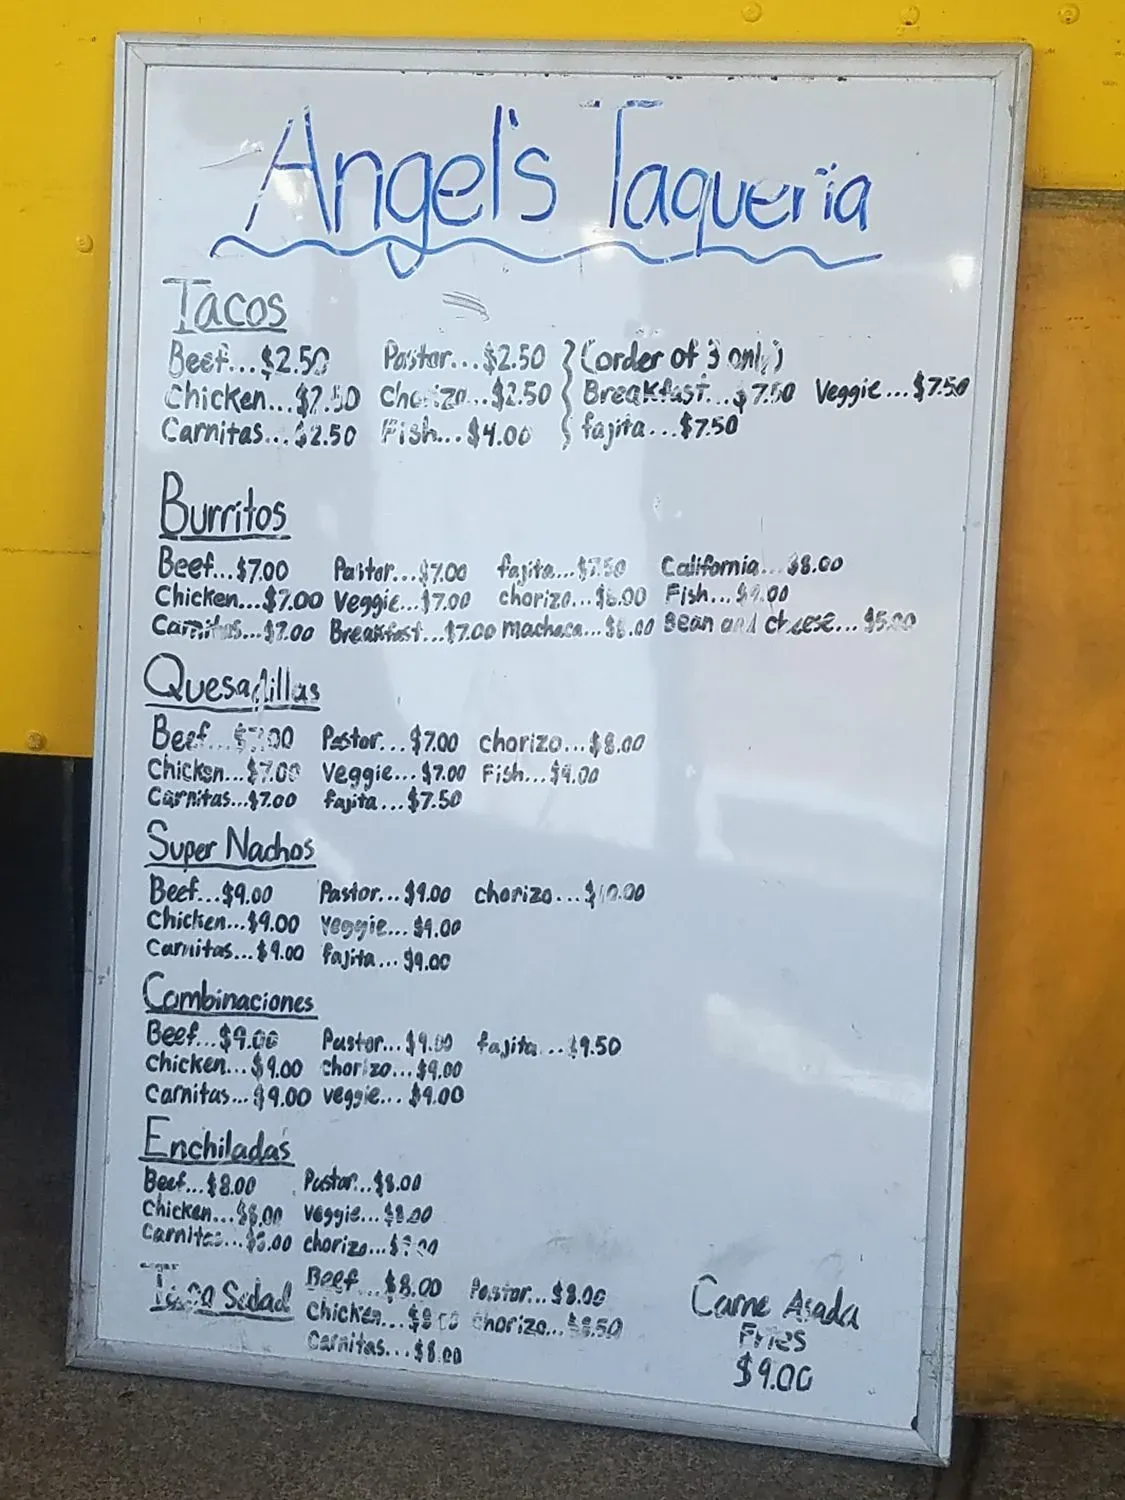 Angel's Taqueria
Tacos
Beef...$2.50 Pastor...$2.50 (order of 3 only)
Chicken...$2.50 Chorizo...$2.50 Breakfast...$7.50 Veggie...$7.50
Carnitas...$2.50 Fish...$4.00 fajita...$7.50
Burritos
Beef...$7.00 Pastor...$7.00 fajita...$7.50 California...$8.00
Chicken...$7.00 Veggie...$7.00 chorizo...$8.00 Fish...$9.00
Carnitas...$7.00 Breakfast...$7.00 machaca...$8.00 Bean and cheese...$5.00
Quesadillas
Beef...$7.00 Pastor...$7.00 chorizo...$8.00
Chicken...$7.00 Veggie...$7.00 Fish...$9.00
Carnitas...$7.00 fajita...$7.50
Super Nachos
Beef...$9.00 Pastor...$9.00 chorizo...$10.00
Chicken...$9.00 Veggie...$9.00
Carnitas...$9.00 fajita...$9.00
Combinaciones
Beef...$9.00 Pastor...$9.00 fajita...$9.50
chicken...$9.00 chorizo...$9.00
Carnitas...$9.00 veggie...$9.00
Enchiladas
Beef...$8.00 Pastor...$8.00
Chicken...$8.00 veggie...$8.00
Carnitas...$8.00 chorizo...
Taco Salad Beef...$8.00 Pastor...$8.00
Chicken...$8.00 chorizo...$8.50
Carnitas...$8.00
Carne Asada
Fries
$9.00